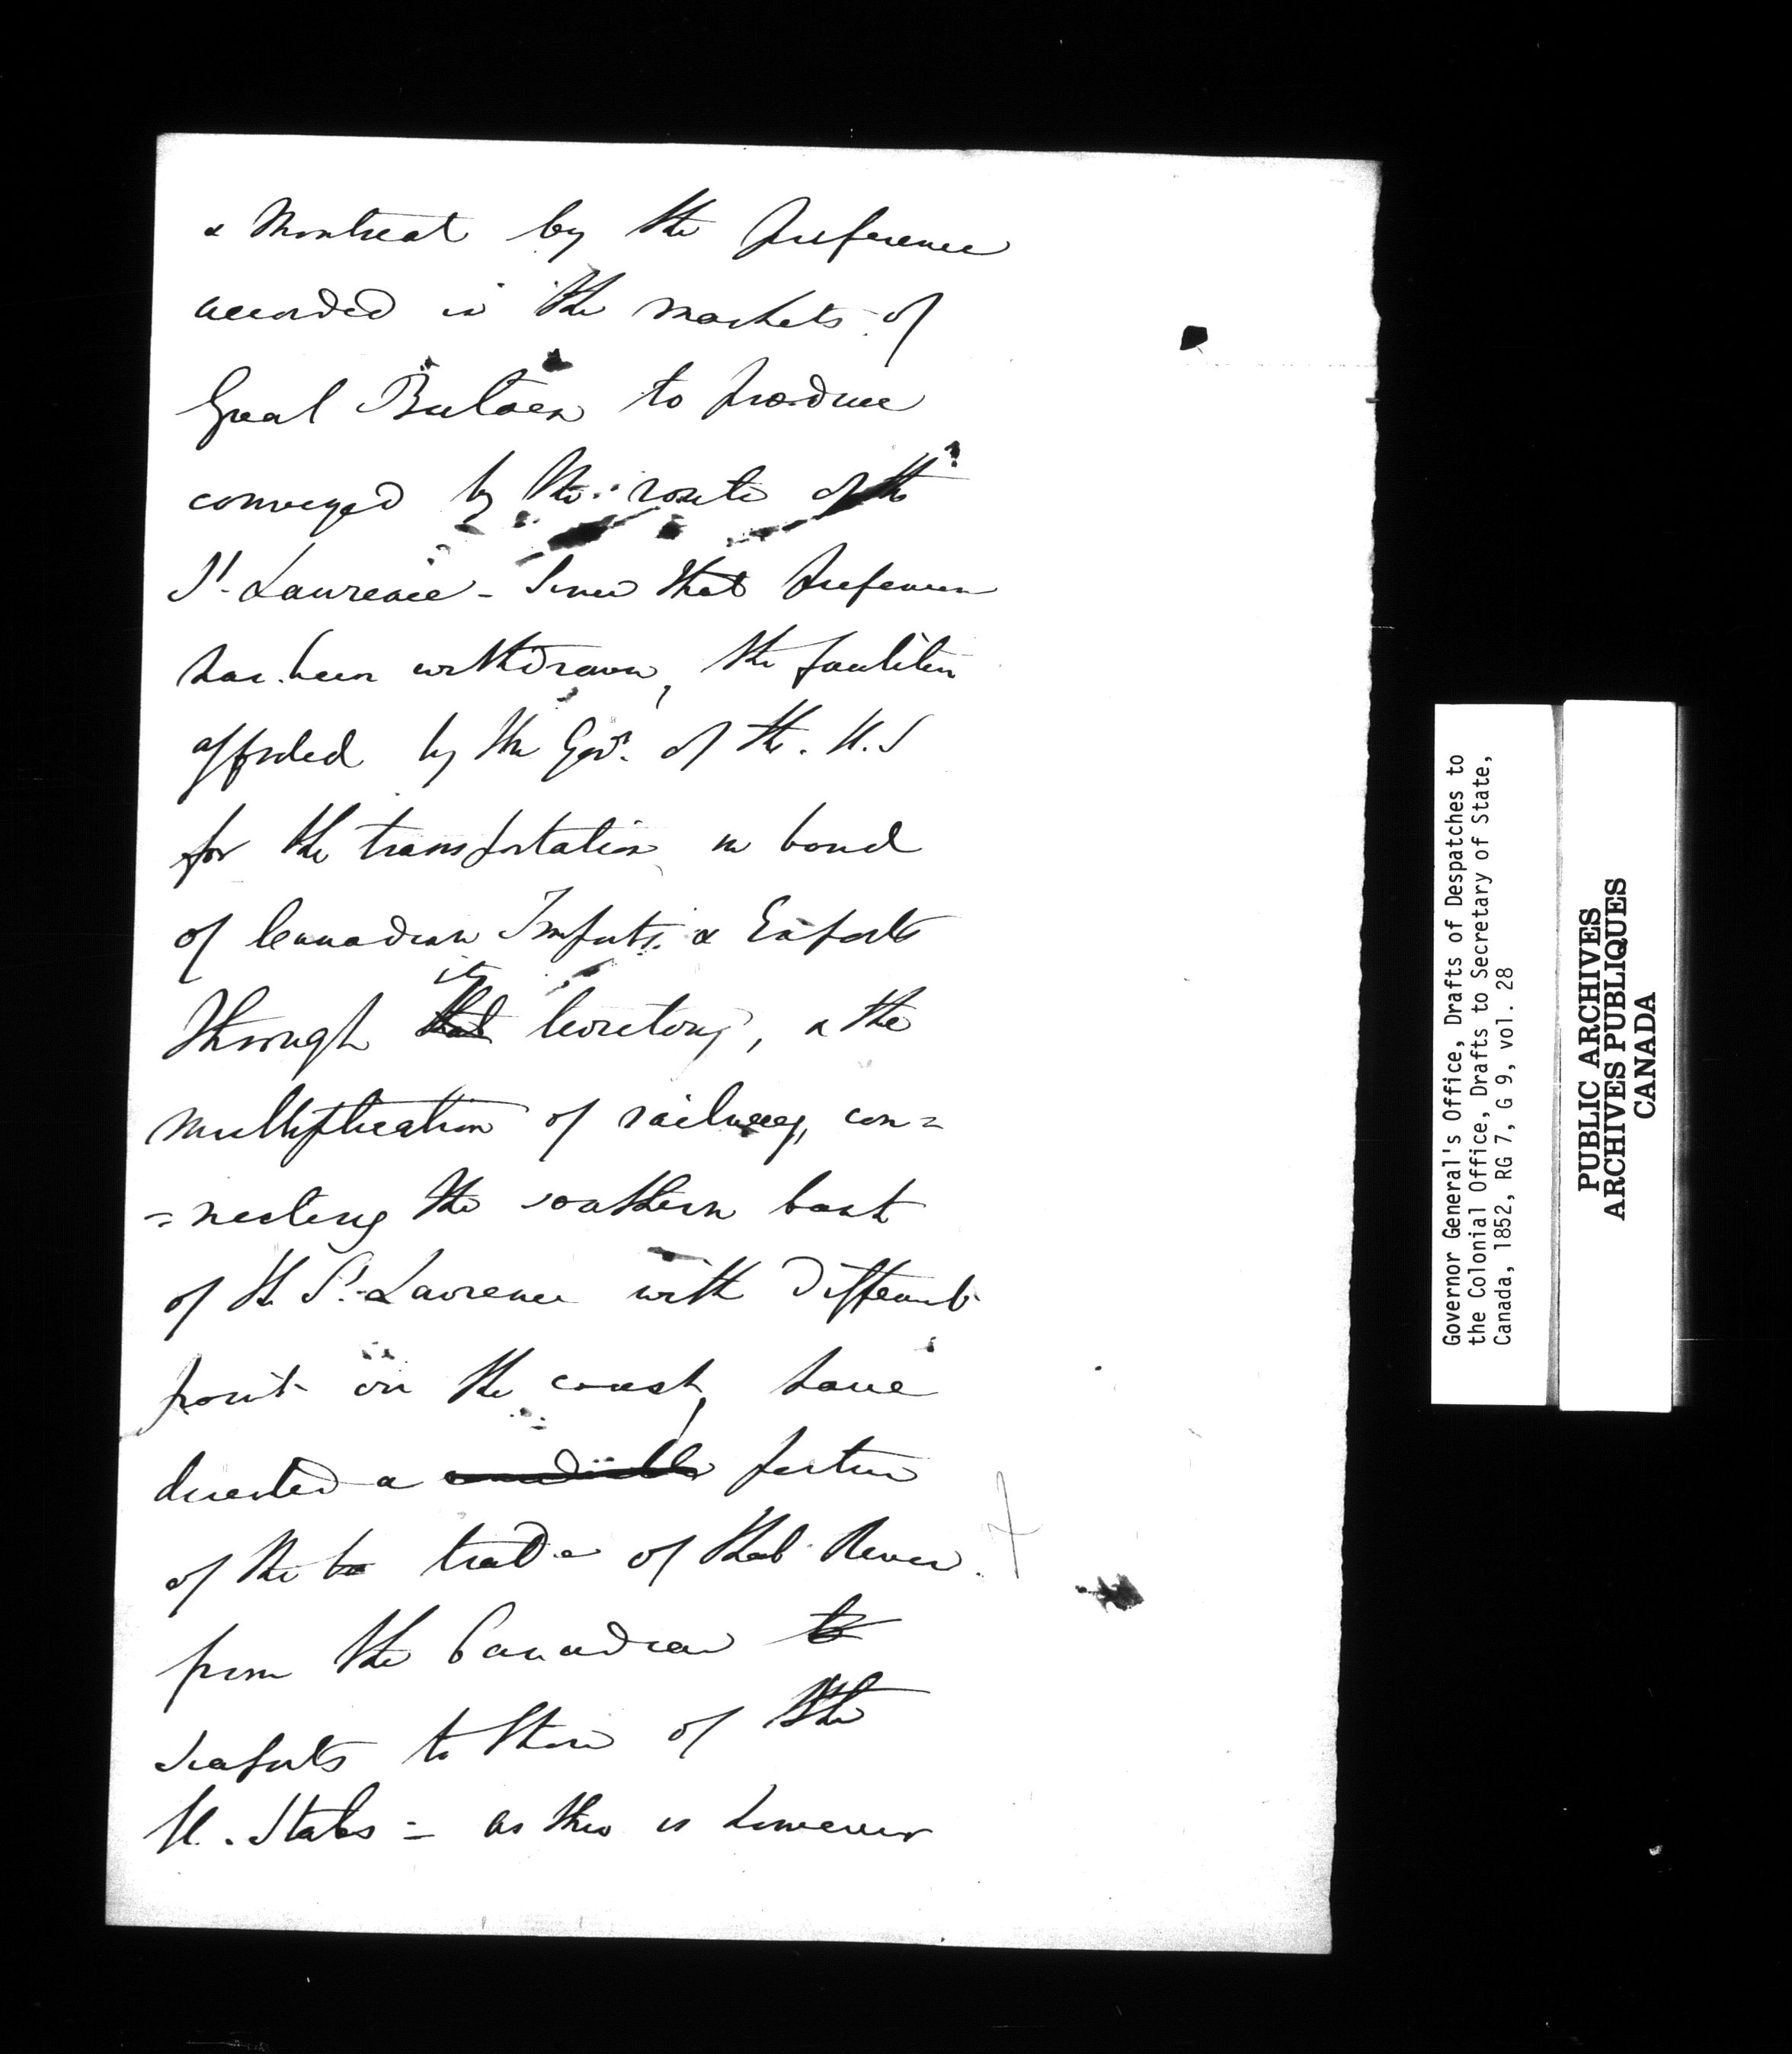 & Montreal by the preference
accorded in the markets of
Great Britain to produce
conveyed by the route of the
St. Lawrence - Since that preference
has been withdrawn, the facilities
afforded by the Govt. of the U.S
for the transportation in bond
of Canadian Imports & Exports
its
through that territory, & the
multiplication of railways, con=
=necting the southern bank
of the St. Lawrence with different
points on the coast, have
diverted a considerable portion
of the to trade of that River
from the Canadian to
seaports to those of the
U. States - as this is however
Governor General's Office, Drafts of Despatches to
the Colonial Office, Drafts to Secretary of State,
Canada, 1852, RG 7, G 9, vol. 28
PUBLIC ARCHIVES
ARCHIVES PUBLIQUES
CANADA